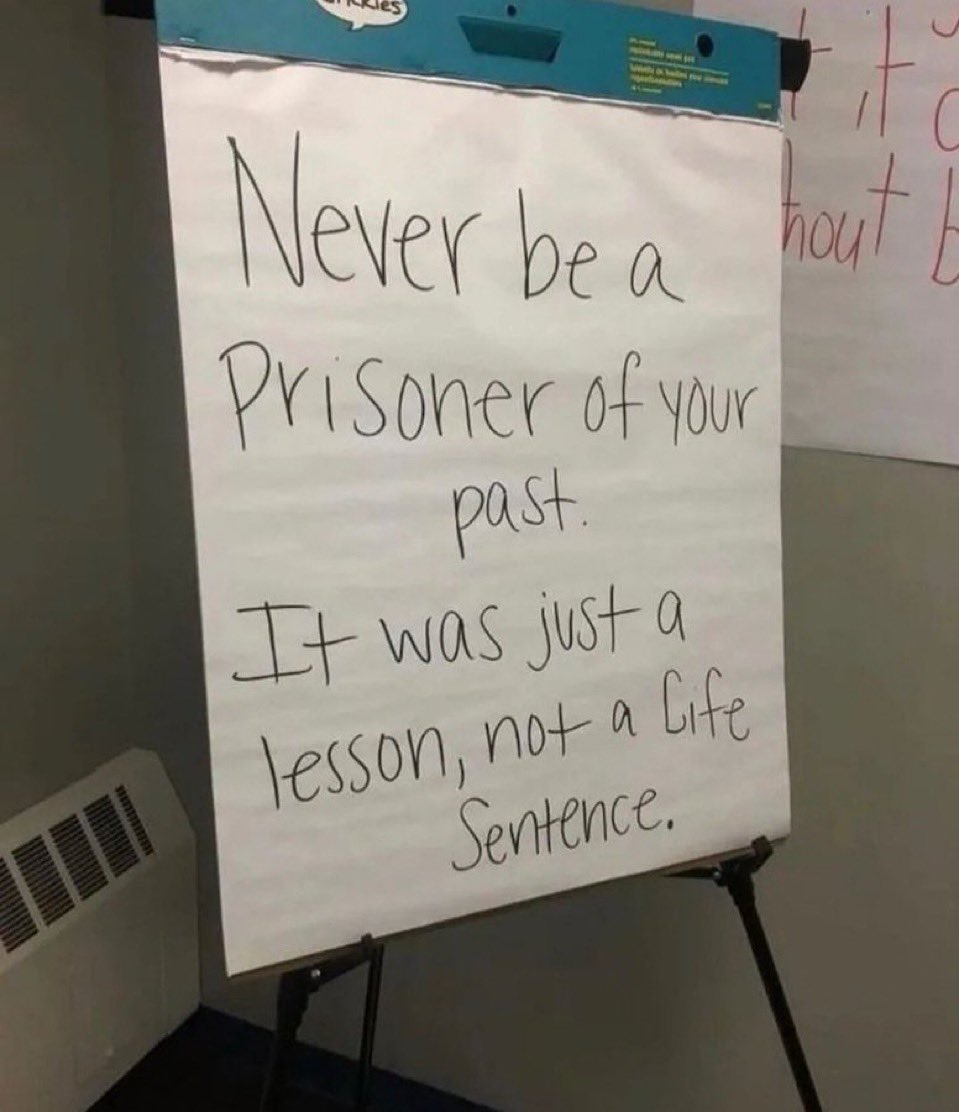 Never be a
Prisoner of your
past.
It was just a
lesson, not a life
Sentence.
it